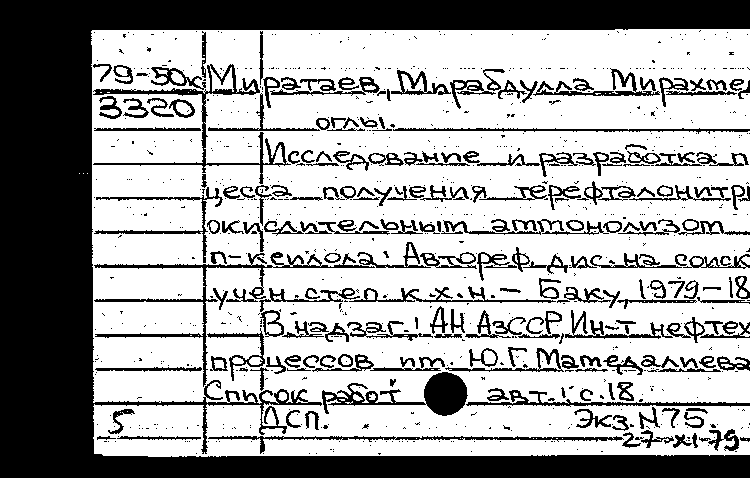 79-50к Миратаев, Мирабдулла Мирахмед
3320
оглы.
Исследование и разработка п
цесса получения терефталонитри
окислительным аммонолизом
п-ксилола: Автореф. дис. на соиск
учен. степ. к.х.н. - Баку, 1979. - 18
В надзаг.: АН АзССР, Ин-т нефтех
процессов им. Ю.Г. Мамедалиева
Список работ авт.: с.18.
5 ДСП. Экз. N75.
27-XI-79